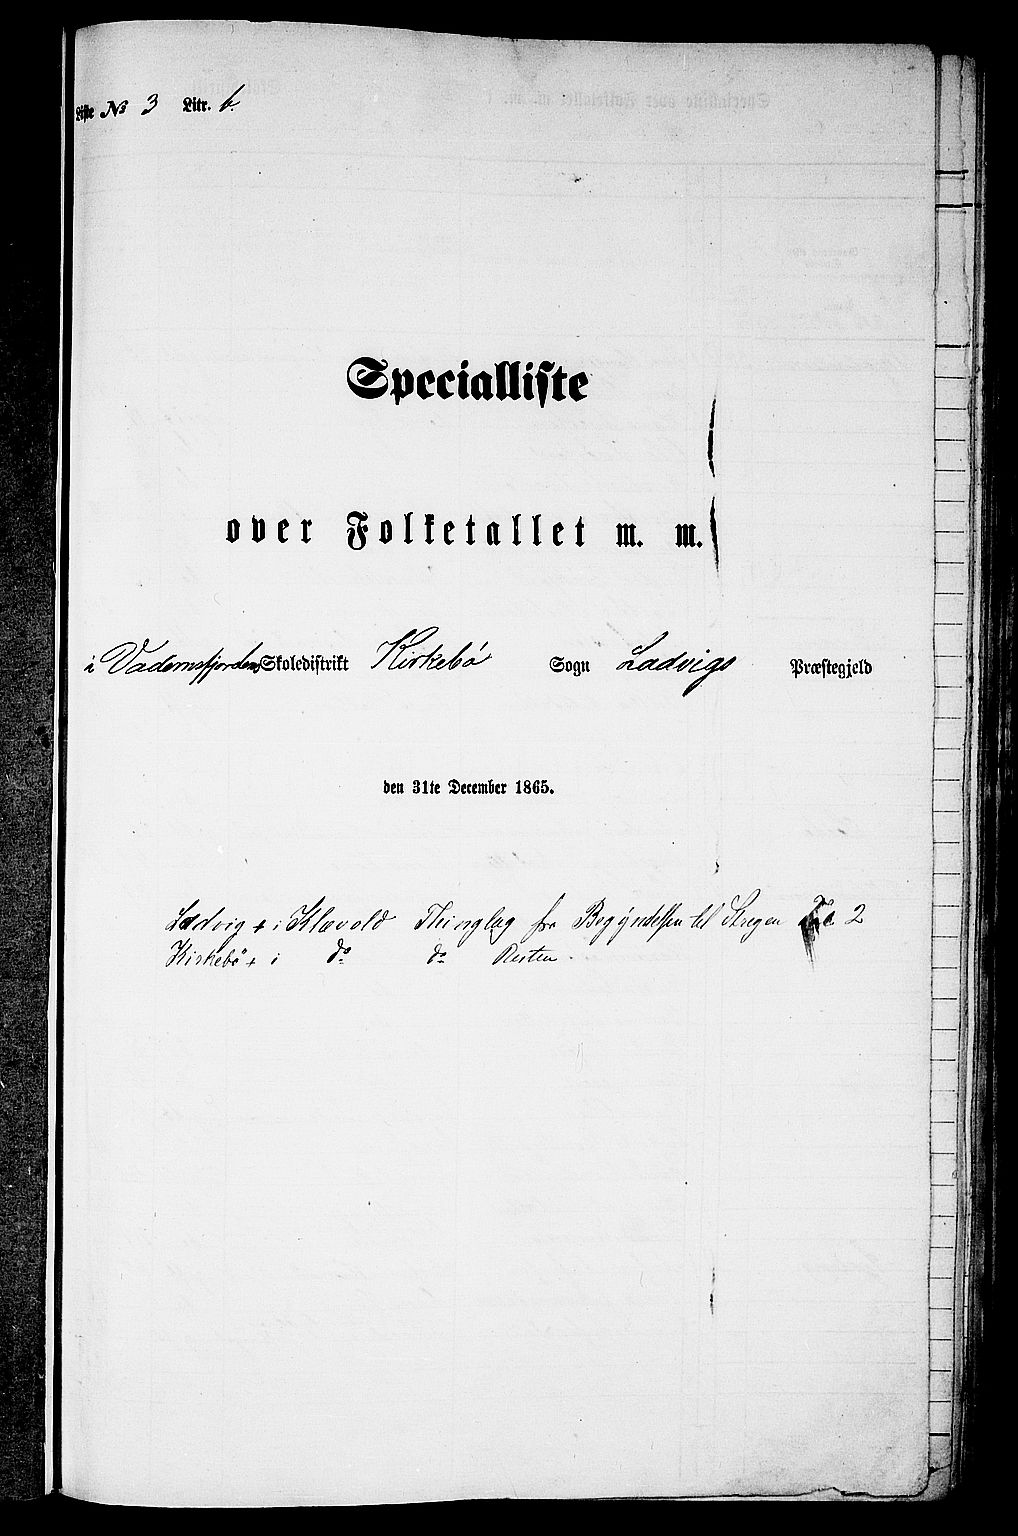 Liste № 3 Litr. b.
Specialliste
over Folketallet m. m.
i Vademsfjordens Skoledistrikt Kirkebö Sogn Ladvigs Præstegjeld
den 31te December 1865.
Ladvig + i Klævold Thinglag fra Begyndelsen til Stregen 2
Kirkebö + i do do Resten